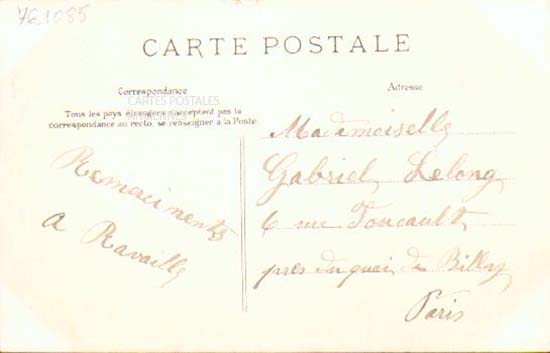 761085
CARTE POSTALE
Correspondance
CARTES POSTALES
Tous les pays étrangers n'acceptent pas la
correspondance au recto, se renseigner à la Poste.
Remerciments
A Ravailly
Adresse
Mademoiselle
Gabriel Lelong
6 rue Foucault
près du quai de Billy
Paris